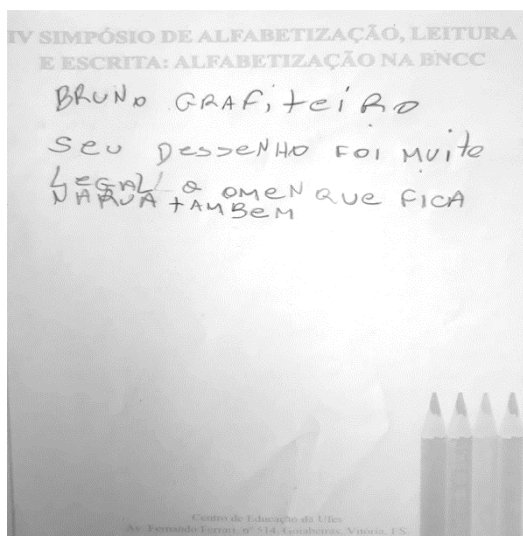 IV SIMPÓSIO DE ALFABETIZAÇÃO, LEITURA
E ESCRITA: ALFABETIZAÇÃO NA BNCC
BRUNO GRAFiteiRO
Seu DessenHO FOI Muite
LEGALL O OMEN QUE FICA
NA RUA tAMBeM
Centro de Educação da Ufes
Av. Fernando Ferrari, nº 514, Goiabeiras, Vitória, ES